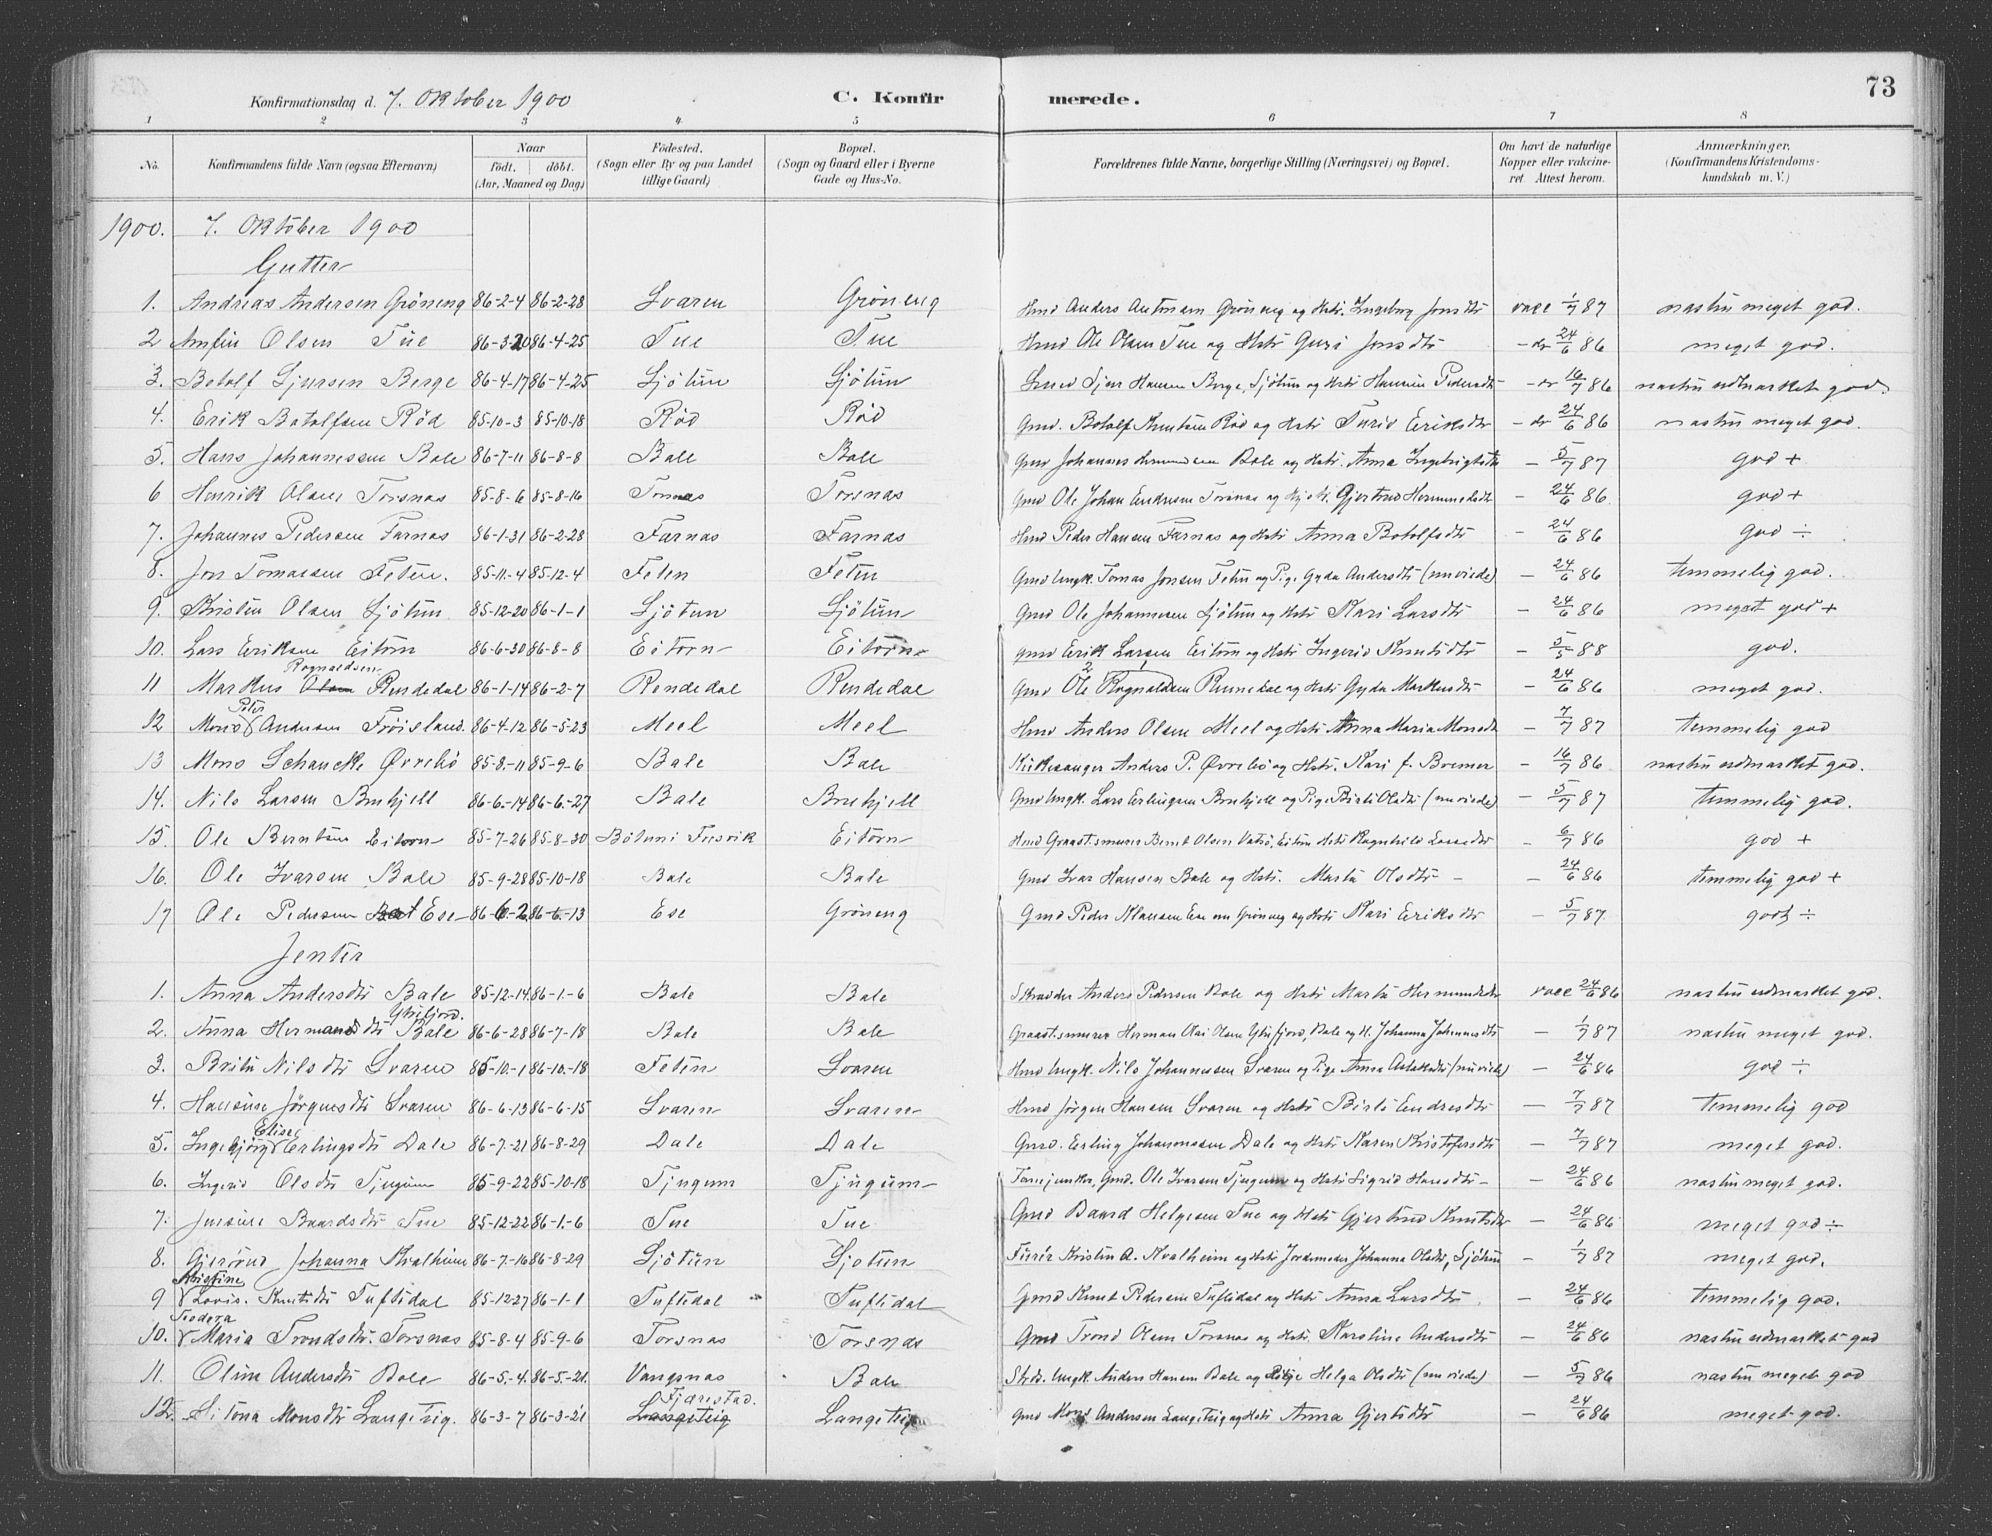 73
Konfirmationsdag d. 7. Oktober 1900 C. Konfirmerede.
1 2 3 4 5 6 7 8
No. Konfirmandens fulde Navn (ogsaa Efternavn) Naar født. døbt. (Aar, Maaned og Dag) Fødested. (Sogn eller By og paa Landet tillige Gaard) Bopæl. (Sogn og Gaard eller i Byerne Gade og Hus-No. Forældrenes fulde Navne, borgerlige Stilling (Næringsvei) og Bopæl. Om havt de naturlige Kopper eller vakcineret. Attest herom. Anmærkninger. (Konfirmandens Kristendomskundskab m. V.)
1900. 7. Oktober 1900
Gutter
1. Andreas Andersen Grøneng 86-2-4 86-2-28 Svaren Grøneng Anders Grøneng og Hstr. Ingeborg Jonsdtr vacc 1/7 87 næsten meget god.
2 Anfin Olsen Tue 86-3-20 86-4-25 Tue Tue Ole Olsen Tue og Hstr Guri Jonsdtr - do 24/6 86 meget god.
3. Botolf Sjursen Berge 86-4-17 86-4-25 Sjøtun Sjøtun Sjur Hansen Berge, Sjøtun og Hstr Pedersdtr - do 16/7 86 næsten udmærket god.
4. Erik Botolfsen Rød 85-10-3 85-10-18 Rød Rød Gmd. Botolf Knutsen Rød og Hstr Turid Eriksdtr - do 24/6 86 næsten meget god.
5. Hans Johannessen Bale 86-7-11 86-8-8 Bale Bale Gmd Johannes Bale og Hstr. Anna - 5/7 87 god +
6 Henrik Olsen Torsnas 85-8-6 85-8-16 Torsnas Torsnas Gmd Ole Johan Endresen Torsnas og Gjertrud - 24/6 86 god +
7. Johannes Pedersen Farnas 86-1-31 86-2-28 Farnas Farnas Peder Hansen Farnas og Hstr Anna Botolfsdtr - 24/6 86 god ÷
8. Jon Tomassen Feten. 85-11-4 85-12-4 Feten Feten Gmd Ungk. Tomas Jonsen Feten og Pige Gyda Andersdtr (nu viede) - 24/6 86 temmelig god.
9. Kristen Olsen Sjøtun 85-12-20 86-1-1 Sjøtun Sjøtun Gmd Ole Johannessen Sjøtun og Hstr Kari Larsdtr - 24/6 86 meget god +
10. Lars Eriksen Eitorn 86-6-30 86-8-8 Eitorn Eitorn Gmd Erik Larsen Eitorn og Hstr Ingerid Knutsdtr - 5/5 88 god.
11 Markus Ragnvaldsen Rendedal 86-1-14 86-2-7 Rendedal Rendedal Gmd Ole Ragnvaldsen og Hstr Gyda Markusdtr - 24/6 86 meget god.
12 Mons Peter Andersen Frøisland. 86-4-12 86-5-23 Meel Meel Anders Olsen Meel og Hstr Anna Maria Monsdtr - 7/7 87 temmelig god
13 Mons Schancke Øvrebø 85-8-11 85-9-6 Bale Bale Kirkesanger Anders P. Øvrebø og Hstr. Kari f. Bremer - 16/7 86 næsten udmærket god.
14. Nils Larsen Brekjell 86-6-14 86-6-27 Bale Brekjell Gmd Ungk. Lars Erlingsen Brekjell og Pige Birte Olsdtr (nu viede) - 5/7 87 temmelig god.
15. Ole Berntsen Eitorn 85-7-26 85-8-30 Bøtun i Fresvik Eitorn Bernt Olsen Eitorn Hstr Ragnhild - 6/7 86 god +
16. Ole Ivarsen Bale 85-9-28 85-10-18 Bale Bale Gmd Ivar Hansen Bale og Hstr. Marta Olsdtr - - 24/6 86 temmelig god +
17 Ole Pedersen Ese 86-6-2 86-6-13 Ese Grøneng Gmd Peder Klausen Ese nu Grøneng og Hstr Kari Eriksdtr - 5/7 87 godt ÷
Jenter
1. Anna Andersdtr Bale 85-12-14 86-1-6 Bale Bale Skræder Anders Pedersen Bale og Hstr Marta - vacc 24/6 86 næsten udmærket god.
2. Anna Hermansdtr Bale 86-6-28 86-7-18 Bale Bale Herman Olai Olsen Bale og H. Johanna Johannesdtr - 1/7 87 næsten meget god.
3. Brita Nilsdtr Svaren 85-10-1 86-10-18 Feten Svaren Ungk. Nils Johannessen Svaren og Pige Anna (nu viede) - 24/6 86 god ÷
4. Hansine Jørgensdtr Svaren 86-6-13 86-6-15 Svaren Svaren Jørgen Hansen Svaren og Hstr Birte Endresdtr - 7/7 87 temmelig god
5. Ingebjørg Elise Erlingsdtr Dale 86-7-21 86-8-29 Dale Dale Gmd. Erling Johannessen Dale og Hstr Karen Kristofersdtr - 7/7 87 meget god.
6. Ingerid Olsdtr Tjugum 85-9-22 85-10-18 Tjugum Tjugum Gmd. Ole Ivarsen Tjugum og Hstr Sigrid Hansdtr - - 24/6 86 næsten meget god.
7. Jensine Baardsdtr Tue 85-12-22 86-1-6 Tue Tue Gmd Baard Helgesen Tue og Hstr Gjertrud Knutsdtr - 24/6 86 meget god ÷
8. Johanna Kvalheim 86-7-16 86-8-29 Sjøtun Sjøtun Kristen A. Kvalheim og Hstr Johanna Olsdtr, Sjøtun - 1/7 87 meget god.
9 Kristine Lovis. Knutsdtr Tuftedal 85-12-27 86-1-1 Tuftedal Tuftedal Gmd Knut Pedersen Tuftedal og Hstr Anna Larsdtr - 24/6 86 temmelig god.
10. Teodora Maria Trondsdtr. Torsnas 85-8-4 85-9-6 Torsnas Torsnas Gmd Trond Olsen Torsnas og Hstr. Karoline Andersdtr - 24/6 86 næsten udmærket god
11. Oline Andersdtr Bale 86-5-4. 86-5-21. Vangsnas Bale Ungk. Anders Hansen Bale og Pige Helga Olsdtr (nu viede) - 5/7 86 næsten meget god
12. Monsdtr Langeteig. 86-3-7 86-3-21 Fjærestad. Langeteig Langeteig Gmd Mons Andersen Langeteig og Hstr Anna Gjertsdtr - 24/6 86 meget god.